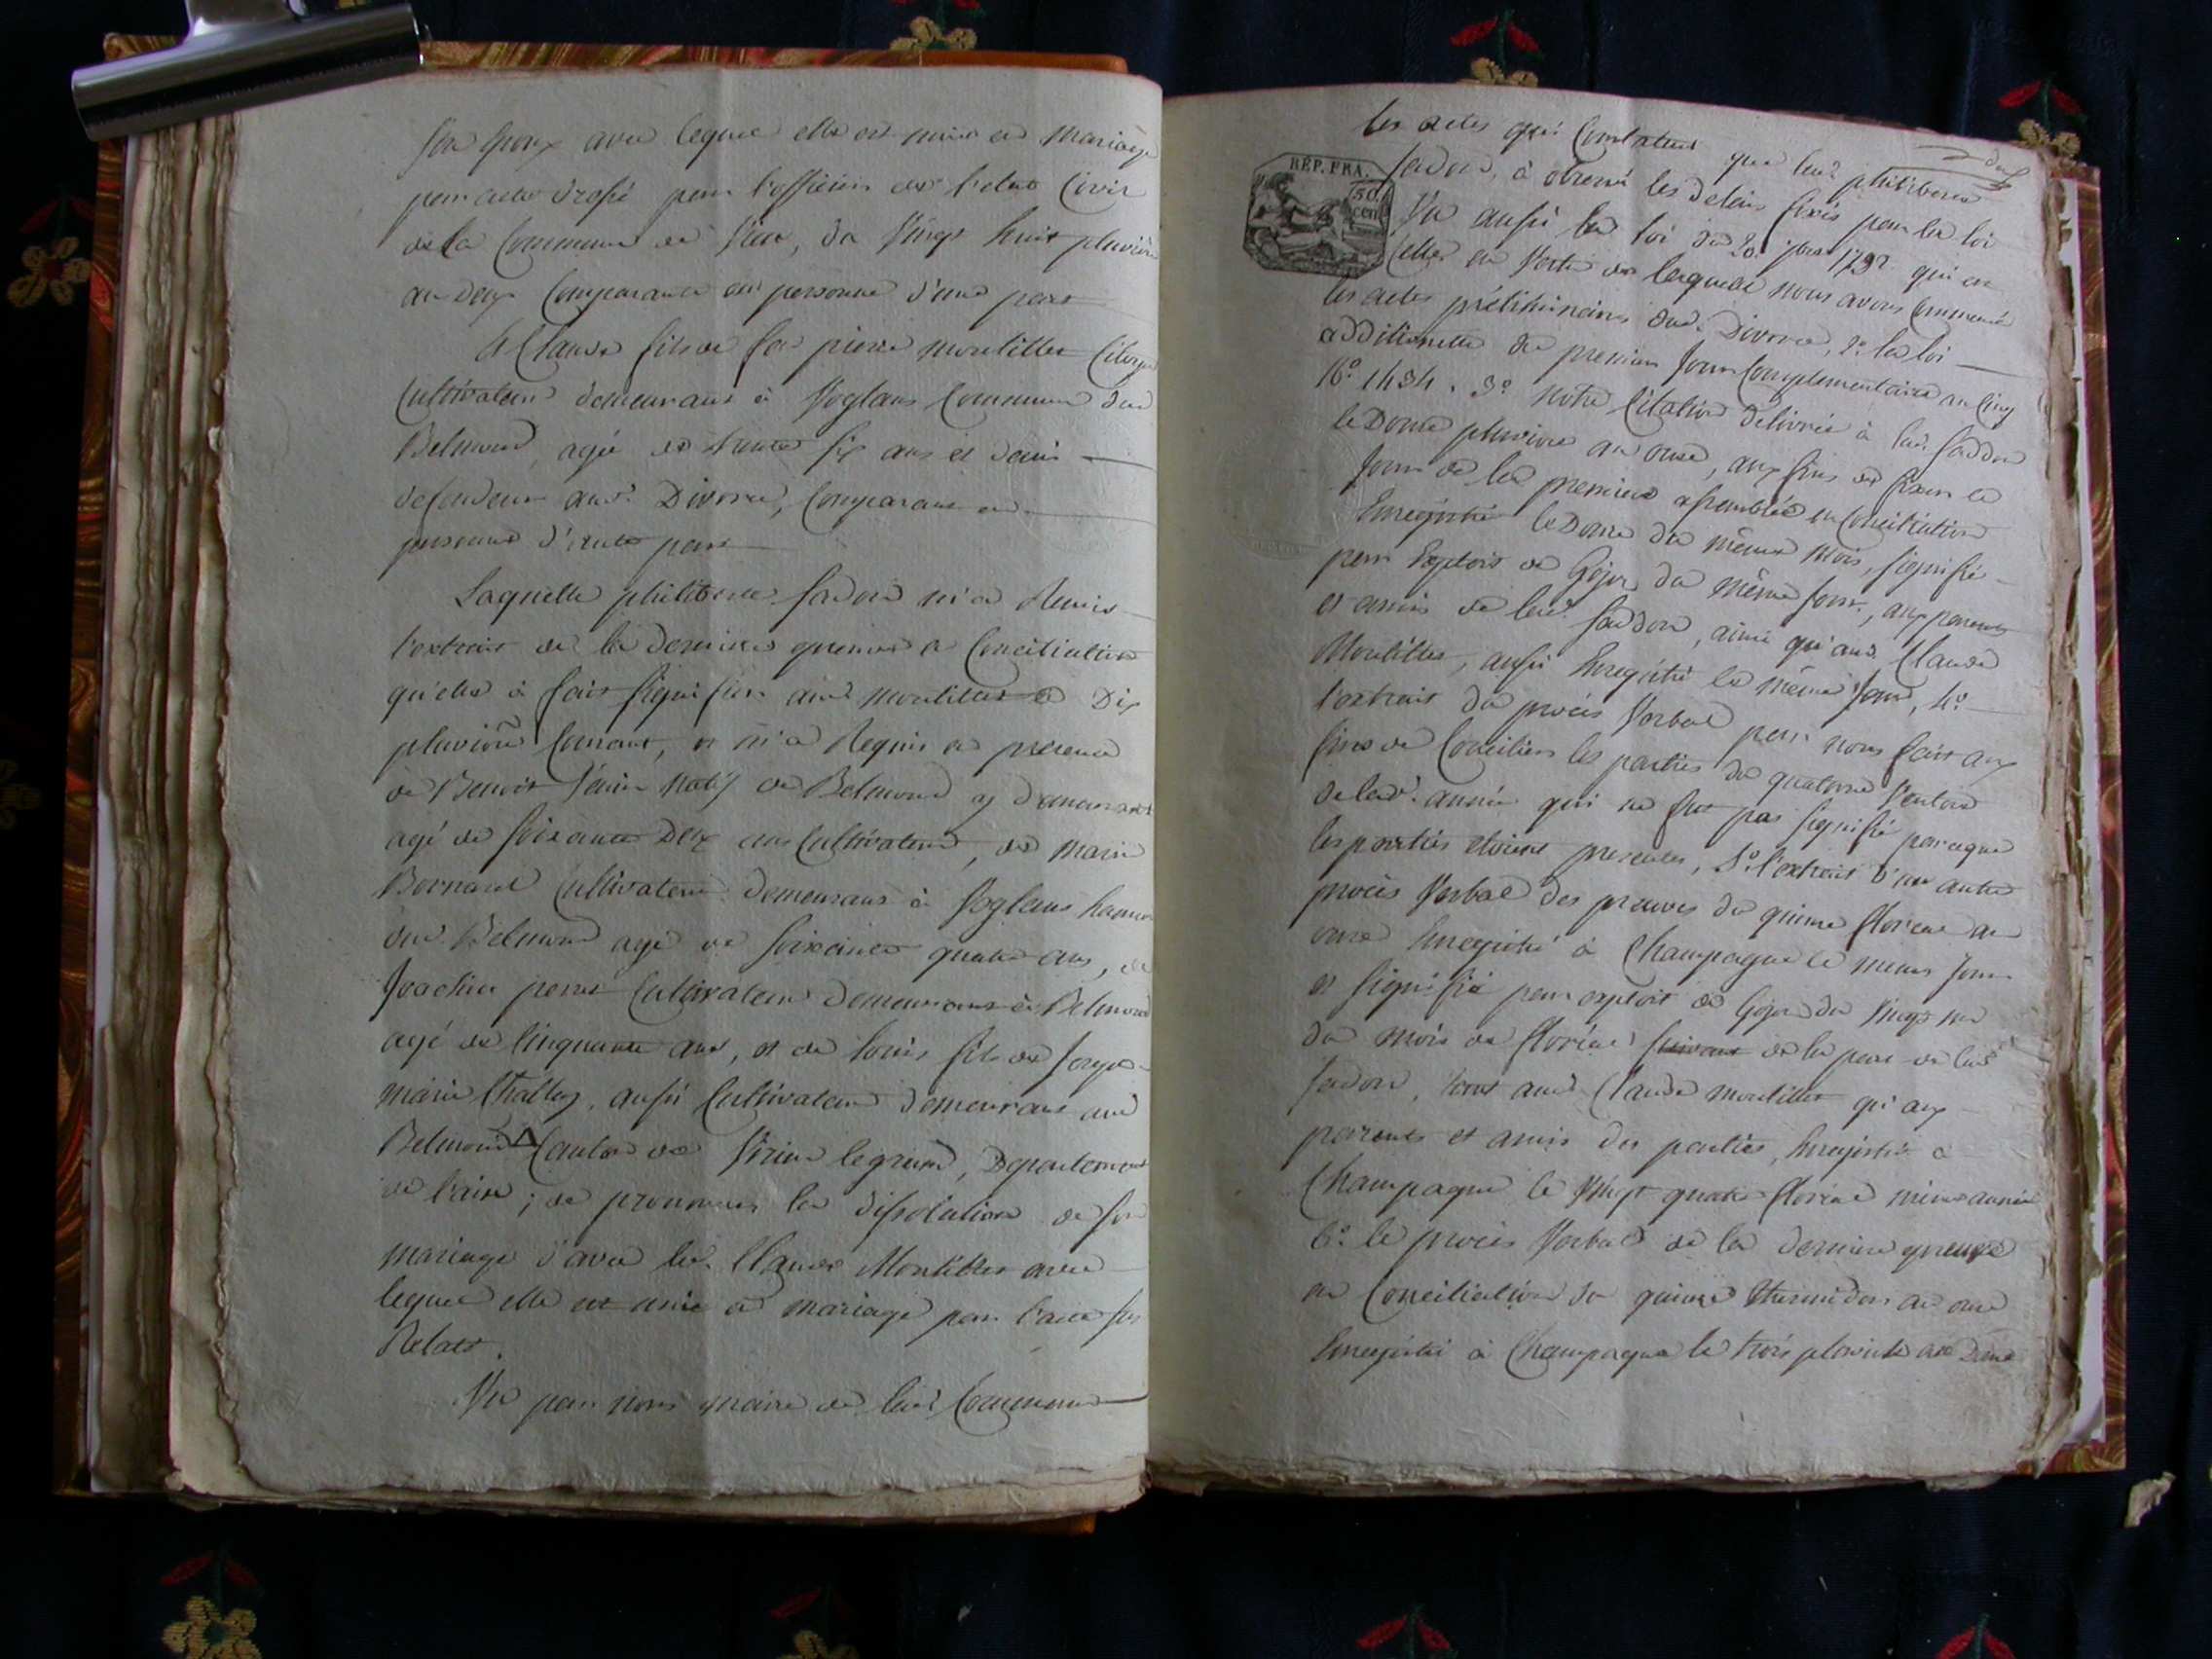 son epoux avec lequel elle est unie en mariage
par acte dressé par l'officier de l'etat Civil
de la Commune de Vieu, du Vingt huit pluviose
an Deux Comparante en personne d'une part
Et Claude fils de feu pierre montillet Citoyen
Cultivateur demeurant à Voglans Commune dud
Belmont, agé de trente six ans et demi
defendeur aud. Divorce, Comparant en
personne d'autre part
Laquelle philiberte fadon m'a Remis
l'extrait de la derniere epreuve en Conciliation
qu'elle a fait signifier aud montillet le Dix
pluviose Courant, et m'a Requis en presence
de Benoit natif de Belmont y demeurant
agé de soixante Deux ans Cultivateur, de marin
Bornarel Cultivateur demeurant à Voglans hameau
dud. Belmont agé de soixante quatre ans, de
Joachin perret Cultivateur demeurant à Belmont
agé de Cinquante ans, et de louis fils de Joseph
marie Challey, aussi Cultivateur demeurant aud
Belmont Canton de Virieu legrand, Departement
de l'ain ; de prononcer la dissolution de son
mariage d'avec led. Claude Montillet avec
lequel elle est unie en mariage par l'acte sus
Relaté.
Vu par nous maire de lad. Commune
les actes qui Constatent que lad. philiberte
RÉP. FRA.
50
cen
fadon, à observé les delais fixés par la loi
Vu aussi la loi du 20 7bre 1792 qui est
Celle en Vertu de laquelle nous avons Commencé
les actes préliminaires dud. Divorce, 2° la loi
additionelle du premier Jour Complementaire an Cinq
N°. 1434. 3° Notre Citation delivrée à lad. fadon
le Douze pluviose an onze, aux fins de fixer le
Jour de la premiere assemblée en Conciliation
Enregistré le Douze du même mois, signifié
par Exploit de Gojon du même Jour, aux parents
et amis de lad. fadon, ainsi qu'aud. Claude
Montillet, aussi Enregistré le même Jour, 4°
l'extrait du procès Verbal par nous fait aux
fins de Concilier les parties du quatorze Ventose
de lad. année qui ne fut pas signifié parceque
les parties etoient presentes, 5° l'extrait d'un autre
procès Verbal des preuves du quinze floreal an
onze Enregistré à Champagne le meme Jour
et signifié par exploit de Gojon du Vingt un
du mois de floréal de la part de lad
fadon, tant aud. Claude montillet qu'aux
parents et amis des parties, Enregistré à
Champagne le Vingt quatre floréal même année
6° le procès Verbal de la derniere epreuve
en Conciliation du quinze thermidor an onze
Enregistré à Champagne le trois pluviose an Douze